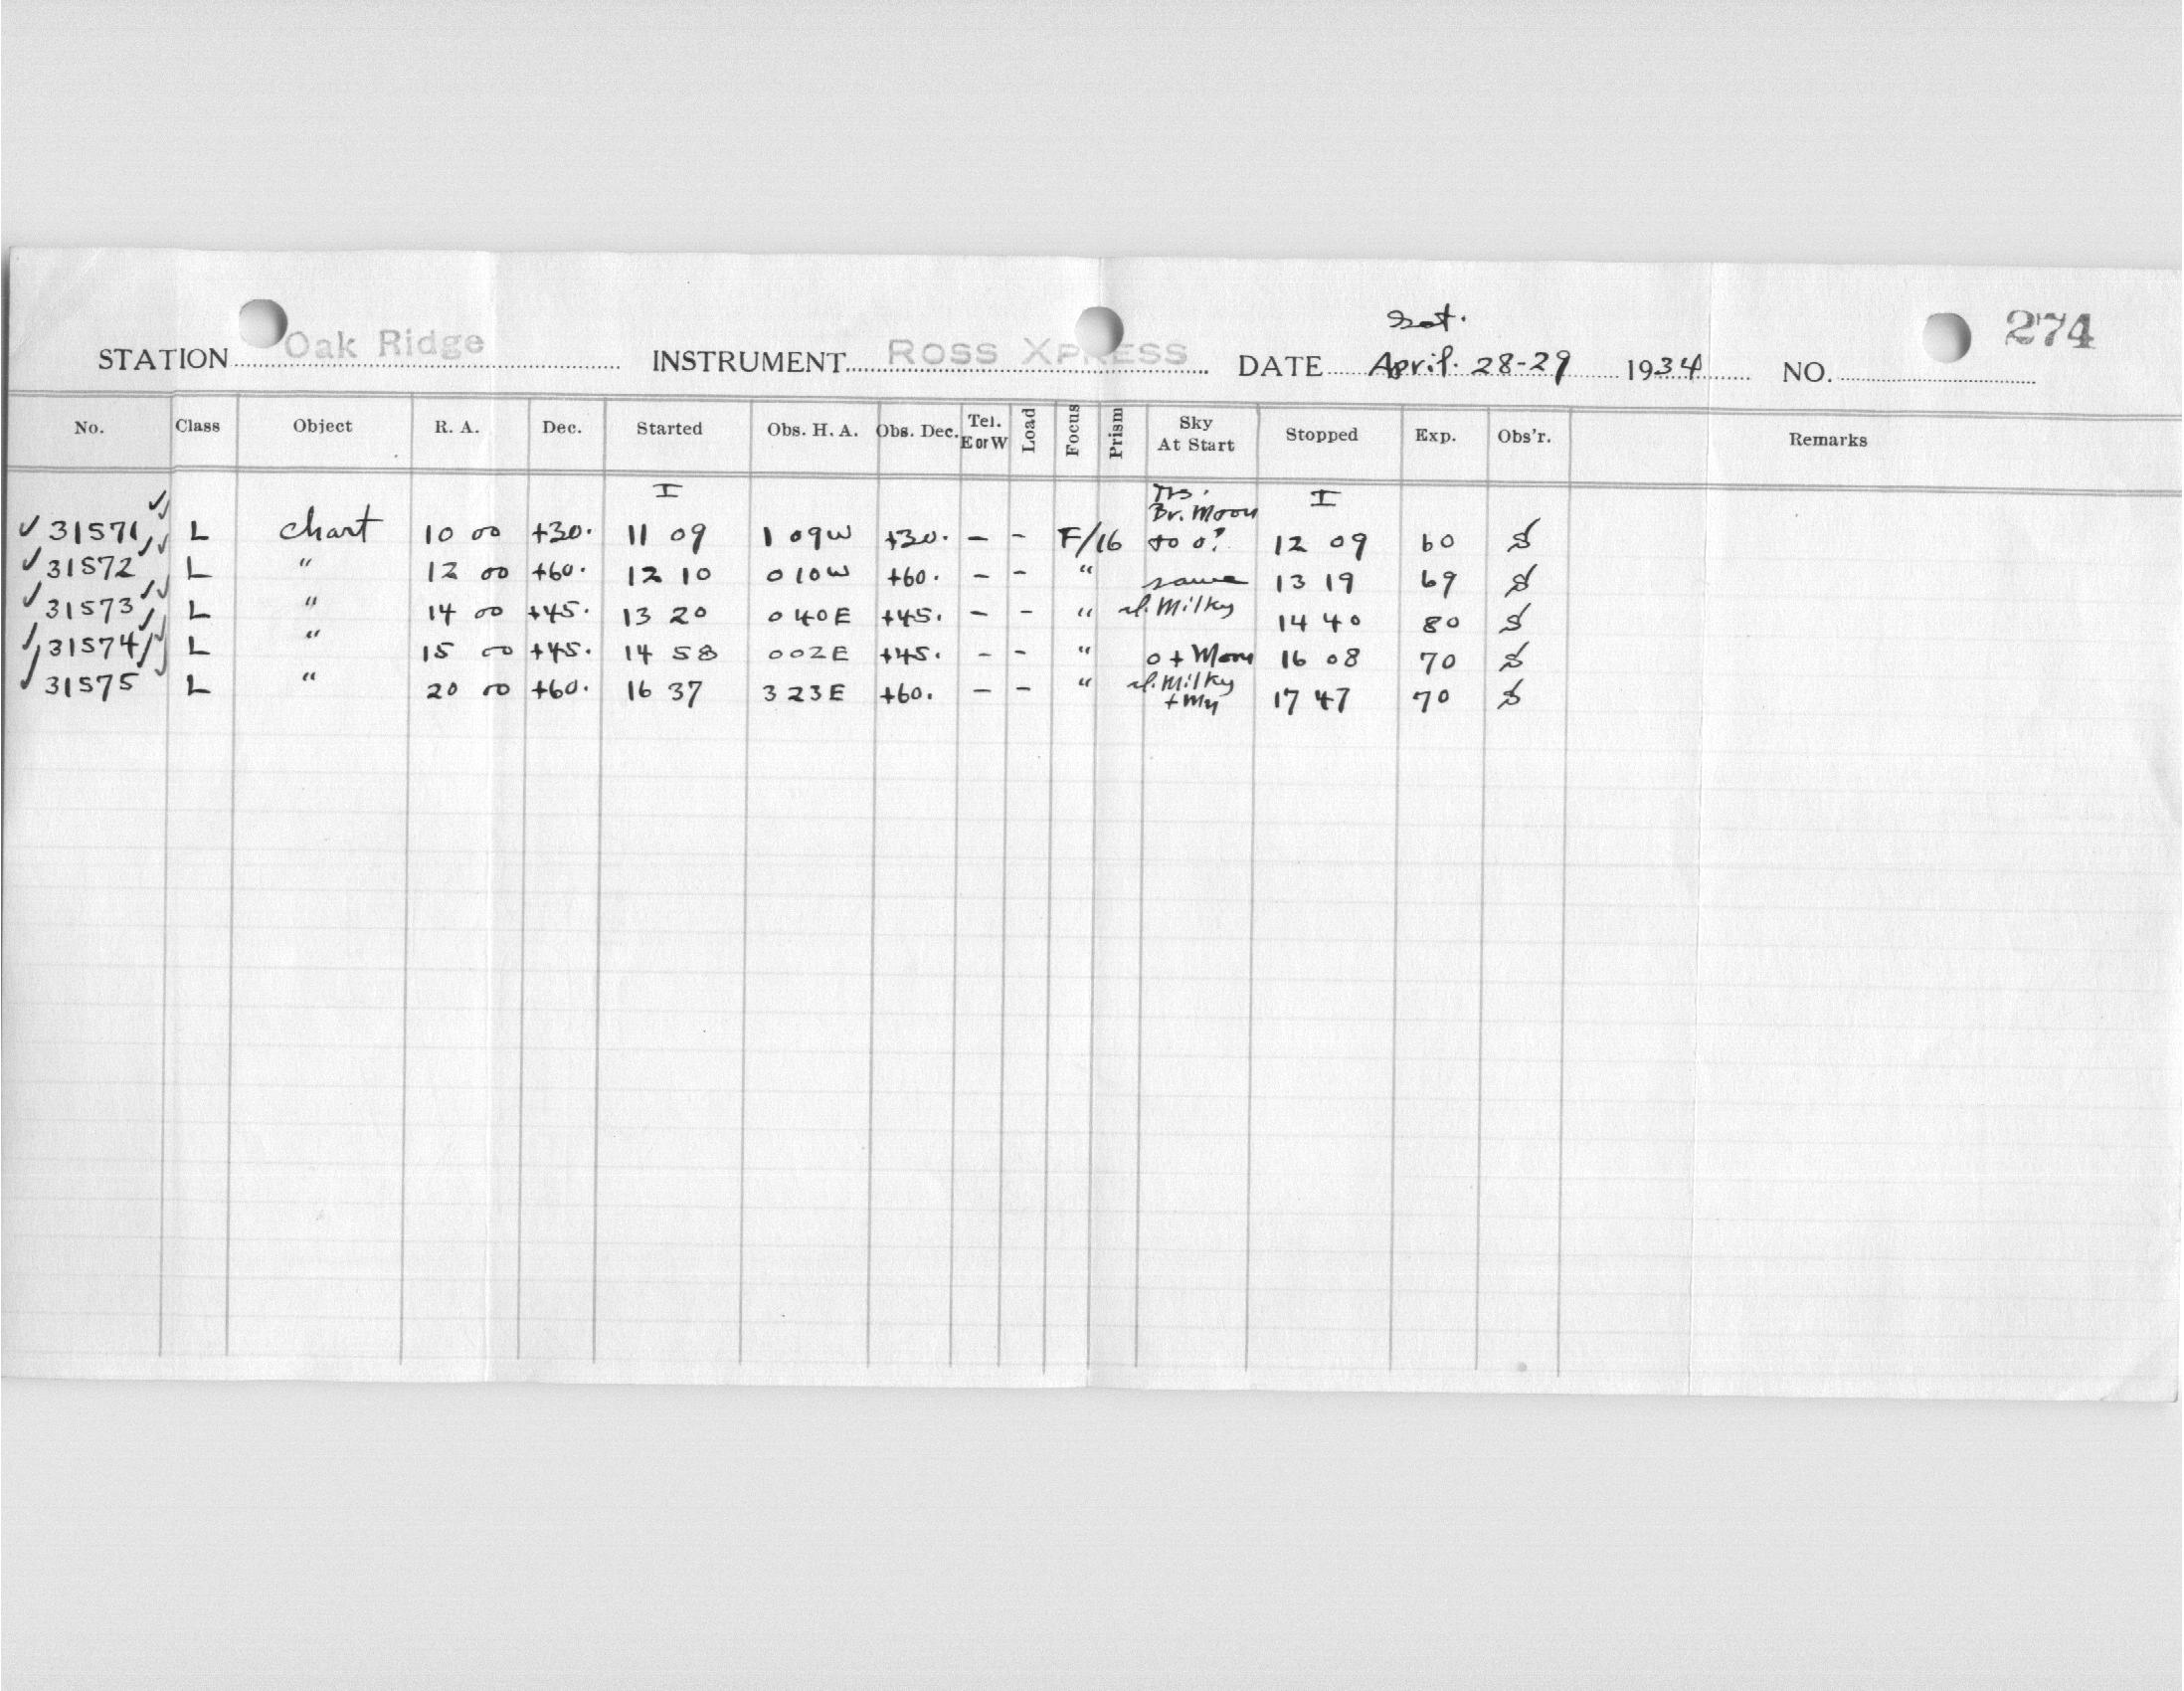 Sat.
STATION Oak Ridge INSTRUMENT ROSS XPRESS DATE April. 28-29 1934 NO. 274
No. Class Object R. A. Dec. Started Obs. H. A. Obs. Dec. Tel. E or W Load Focus Prism Sky At Start Stopped Exp. Obs'r. Remarks
I Br. Moon I
✓ 31571 ✓✓ L chart 10 00 +30. 11 09 1 09W +30. - - F/16 to 0? 12 09 60 S
✓ 31572 ✓✓ L " 12 00 +60. 12 10 0 10W +60. - - " same 13 19 69 S
✓ 31573 ✓✓ L " 14 00 +45. 13 20 0 40E +45. - - " Milky 14 40 80 S
✓ 31574 ✓✓ L " 15 00 +45. 14 58 0 02E +45. - - " 0 + Moon 16 08 70 S
✓ 31575 ✓✓ L " 20 00 +60. 16 37 3 23E +60. - - " Milky + Mn 17 47 70 S